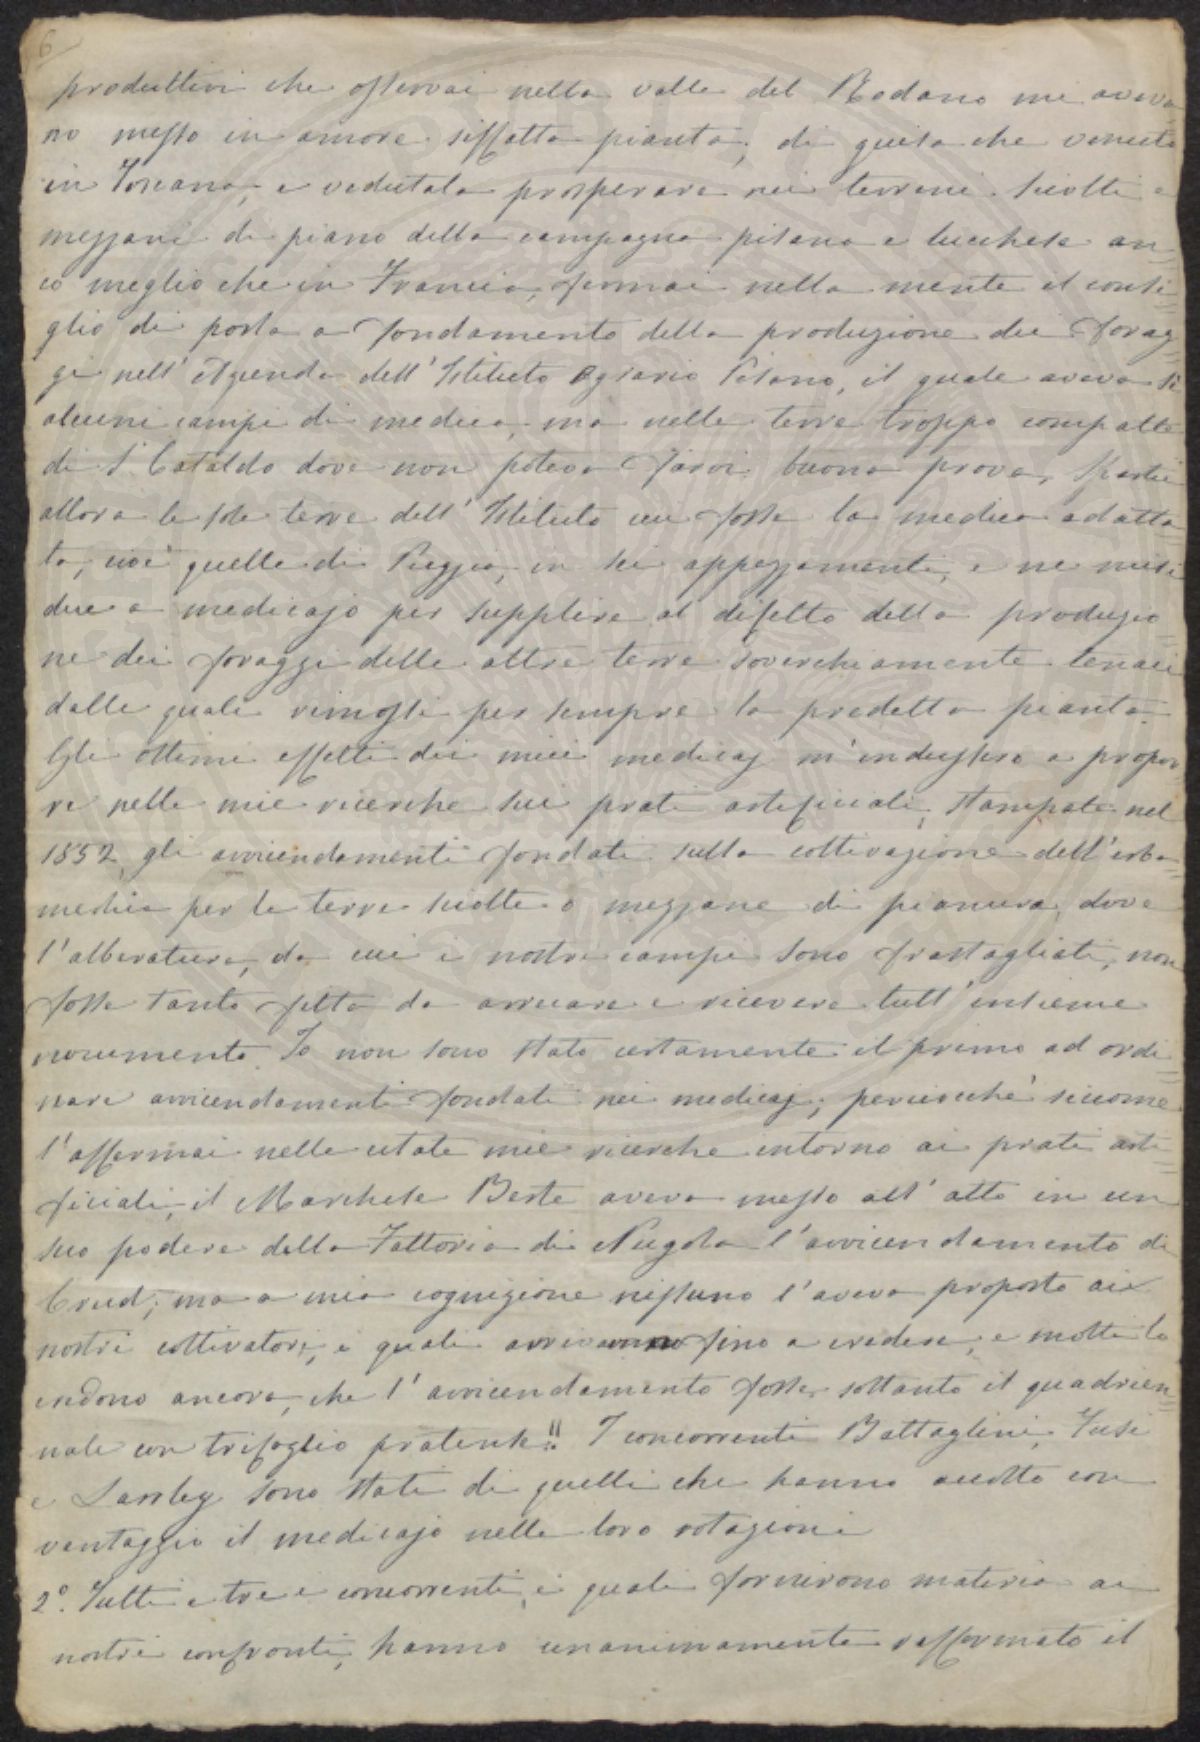 6
produttivi che osservai nella valle del Rodano mi aveva
no messo in amore siffatta pianta, di guisa che venuto
in Toscana, e vedutala prosperare nei terreni sciolti e
mezzani di piano della campagna pisana e lucchese an=
co meglio che in Francia, fermai nella mente il consi=
glio di porla a fondamento della produzione dei forag=
gi nell'Azienda dell'Istituto Agrario Pisano, il quale aveva sì
alcuni campi di medica, ma nelle terre troppo compatte
di S. Cataldo dove non poteva farvi buona prova. Spartii
allora le sole terre dell'Istituto cui fosse la medica adatta
ta, cioè quelle di Piaggia, in sei appezzamenti, e ne misi
due a medicajo per supplire al difetto della produzio=
ne dei foraggi delle altre terre soverchiamente tenaci
dalle quali rimossi per sempre la predetta pianta.
Gli ottimi effetti dei miei medicaj m'indussero a propor=
re nelle mie ricerche sui prati artificiali, stampate nel
1852, gli avvicendamenti fondati sulla coltivazione dell'erba=
medica per le terre sciolte o mezzane di pianura, dove
l'alberatura, da cui i nostri campi sono frastagliati, non
fosse tanto fitta da arrecare e ricevere tutt'insieme
nocumento. Io non sono stato certamente il primo ad ordi=
nare avvicendamenti fondati nei medicaj, perciocchè siccome
l'affermai nelle citate mie ricerche intorno ai prati arti=
ficiali, il Marchese Berte aveva messo all'atto in un
suo podere della Fattoria di Nugola l'avvicendamento di
Crud; ma a mia cognizione nissuno l'aveva proposto ai
nostri coltivatori, i quali arrivarono fino a credere, e molti lo
credono ancora, che l'avvicendamento fosse soltanto il quadrien=
nale con trifoglio pratense!! I concorrenti Battaglini, Tusi
e Lawley sono stati di quelli che hanno accolto con
vantaggio il medicajo nelle loro rotazioni
2°. Tutti e tre i concorrenti, i quali fornirono materia ai
nostri confronti, hanno unanimamente raffermato il